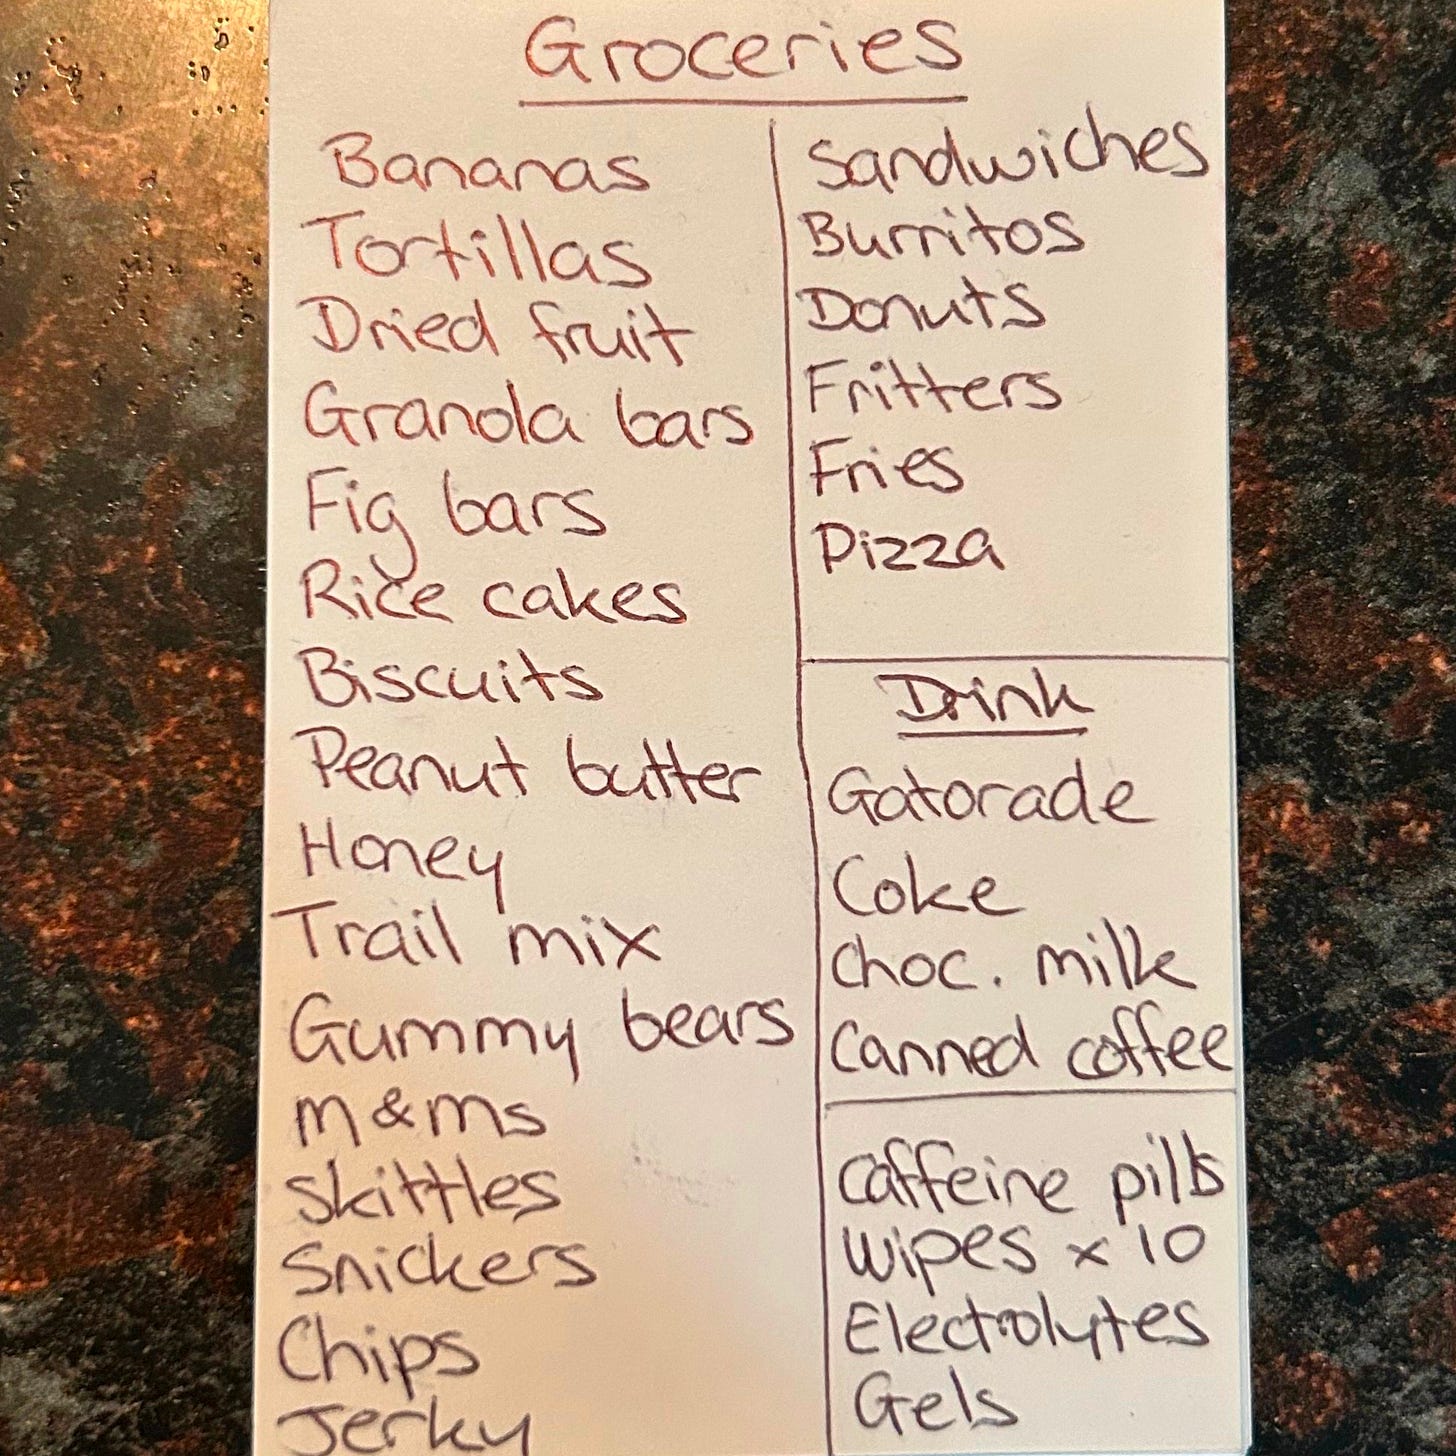 Groceries
Bananas
Tortillas
Dried fruit
Granola bars
Fig bars
Rice cakes
Biscuits
Peanut butter
Honey
Trail mix
Gummy bears
m&ms
Skittles
Snickers
Chips
Jerky
Sandwiches
Burritos
Donuts
Fritters
Fries
Pizza
Drink
Gatorade
Coke
Choc. milk
Canned coffee
Caffeine pills
Wipes x 10
Electrolytes
Gels